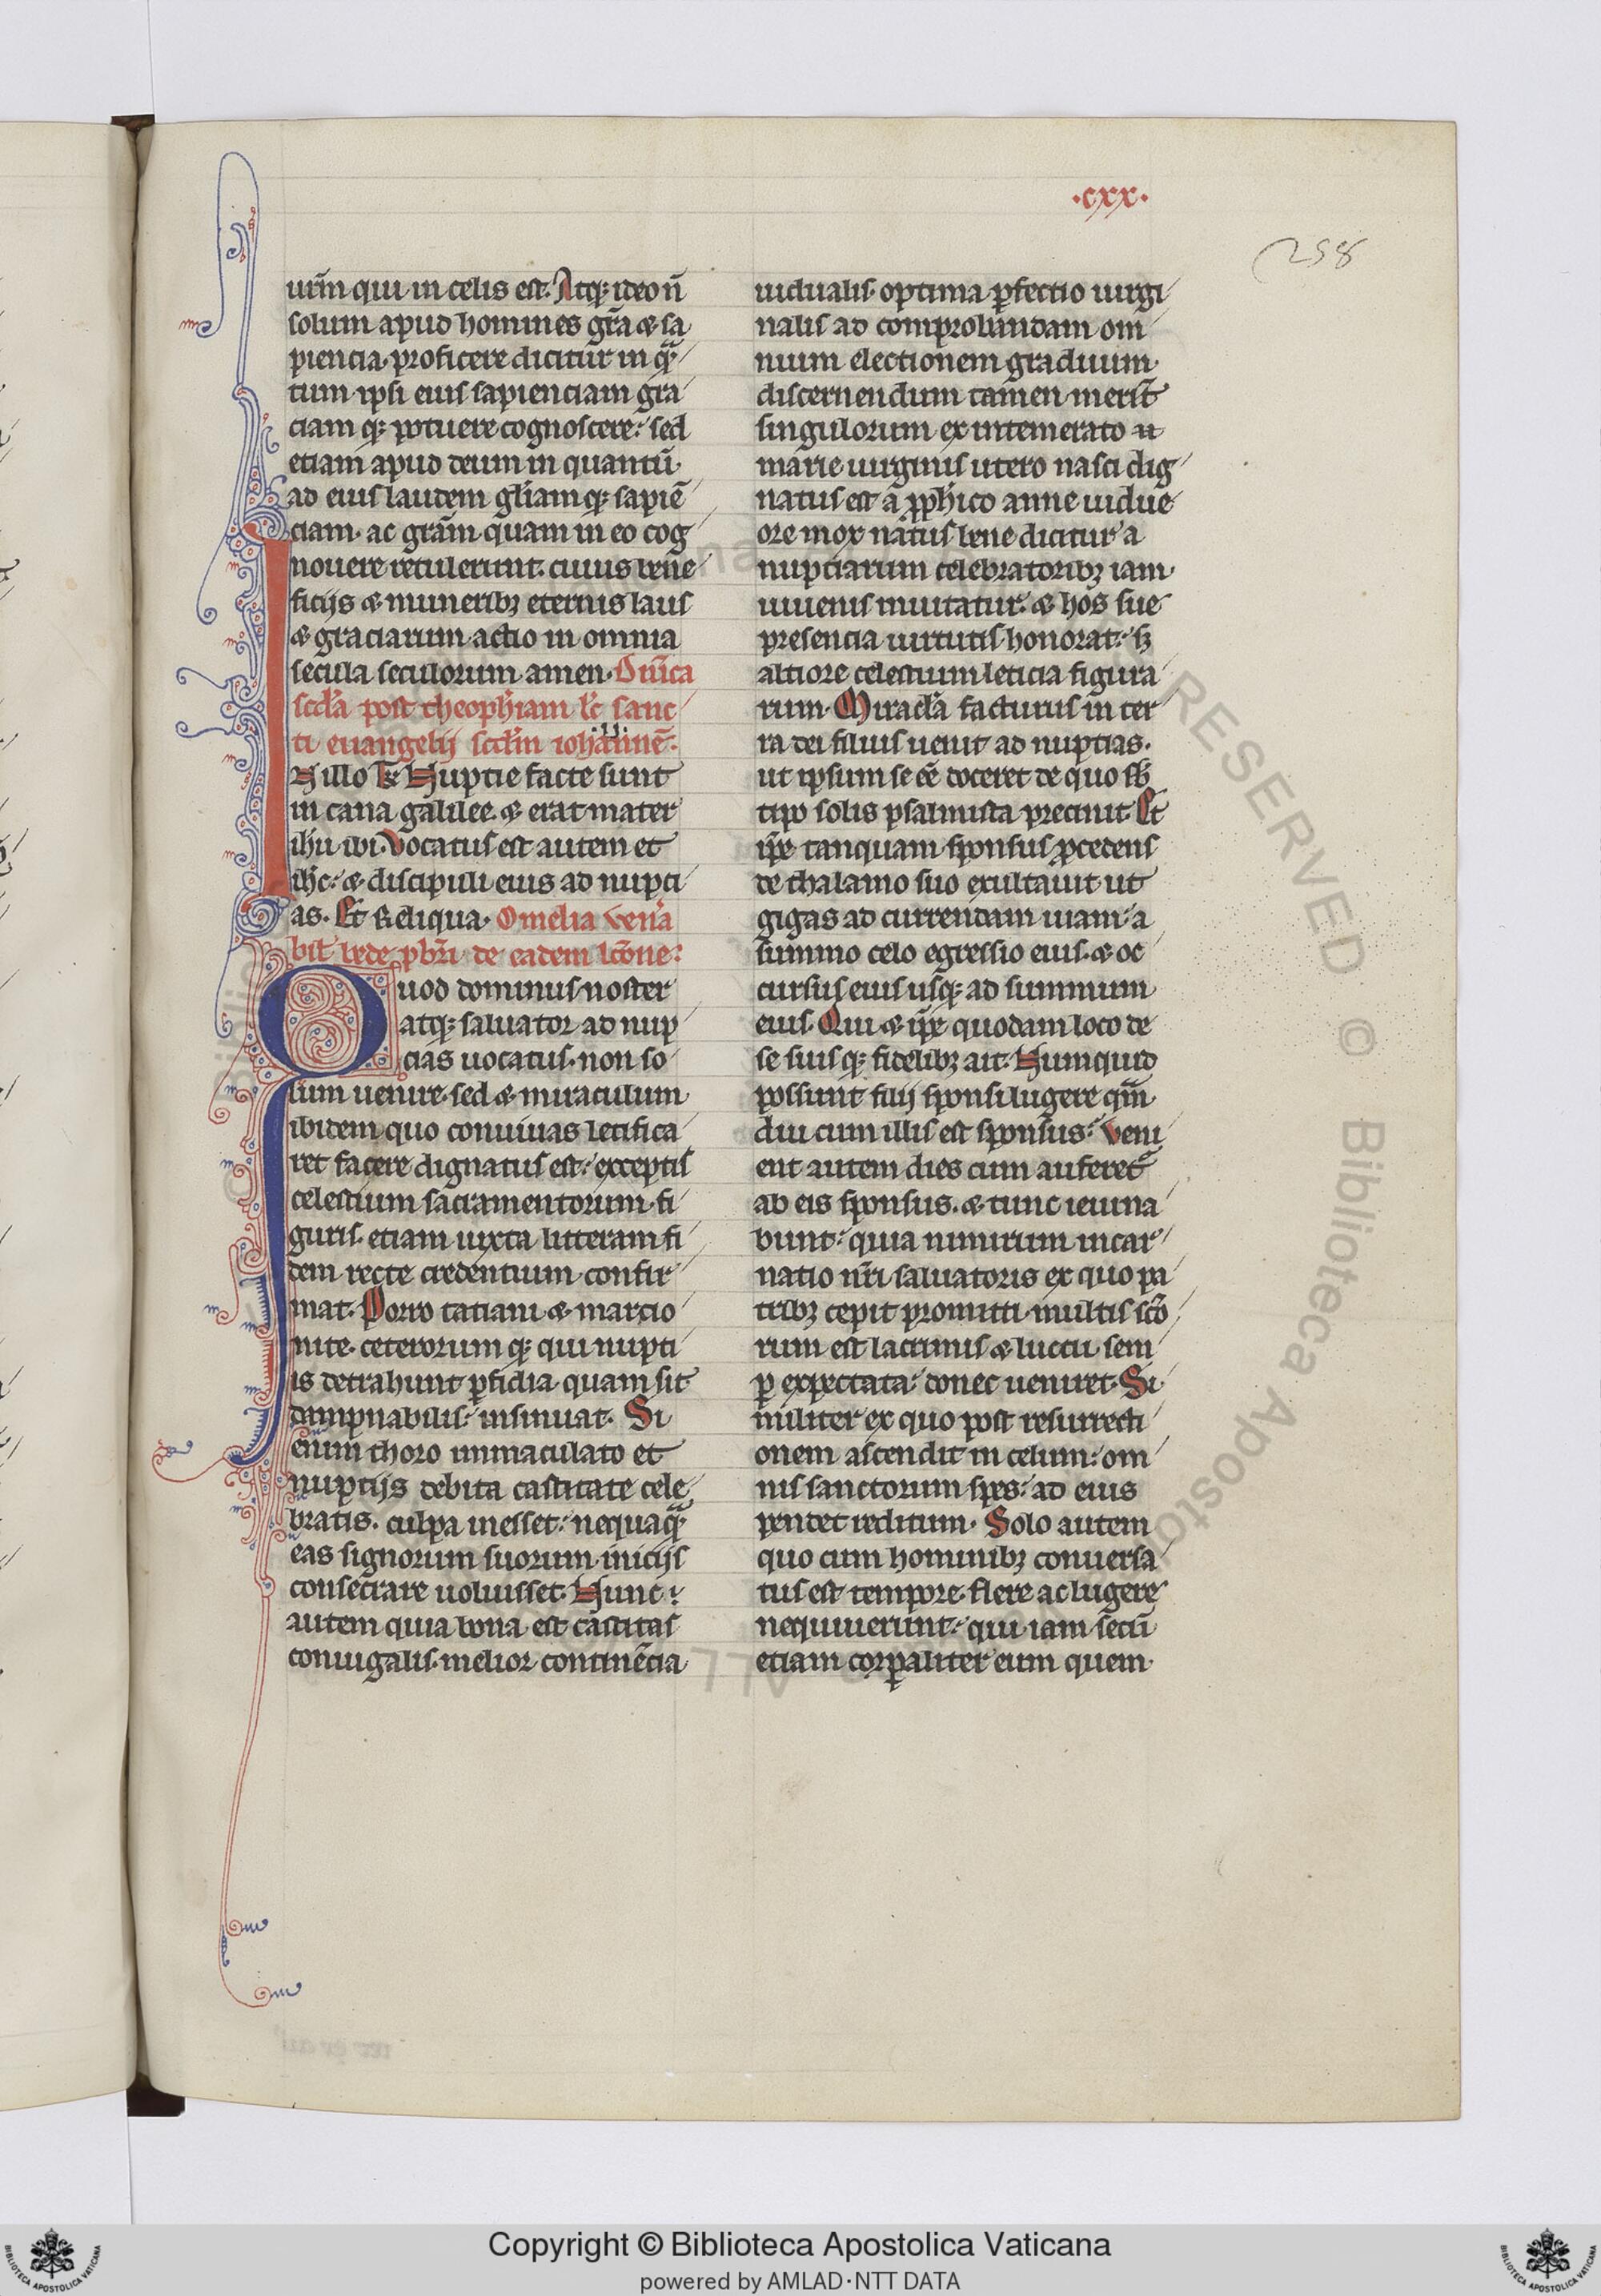 ·cxx·
258
urm̄ qui in celis est. Atq; ideo n̄
solum apud homines gr̄a & sa
piencia proficere dicitur in qᵃ̄
tum ipsi eius sapienciam gra
ciam q; potuere cognoscere: sed
etiam apud deum in quantū
ad eius laudem gl̄iam q; sapiē
ciam. ac gr̄am quam in eo cog
nouere retulerunt. cuius bene
ficijs & muneribꝫ eternis laus
& graciarum actio in omnia
secula seculorum amen. Dn̄ica
scd̄a post theoph̄iam lc̄ sanc
ti euangelij scd̄m iohannē.
In illo t̄r̄ Nuptie facte sunt
in cana galilee. & erat mater
ih̄u ibi. Vocatus est autem et
ih̄c: & discipuli eius ad nupci
as. Et Reliqua. Omelia venᵃ
bil̄ bede pb̄ri de eadem lc̄one:
Quod dominus noster
atq; saluator ad nup
cias uocatus. non so
lum uenire. sed & miraculum
ibidem quo conuiuas letifica
ret facere dignatus est: exceptis
celestium sacramentorum fi
guris. etiam iuxta litteram fi
dem recte credentium confir
mat. Porro tatiani & marcio
nite. ceterorum q; qui nupti
is detrahunt ꝑfidia quam sit
dampnabilis: insinuat. Si
enim thoro inmaculato et
nuptijs debita castitate cele
bratis. culpa inesset: nequaqᵃ̄
eas signorum suorum inicijs
consecrare uoluisset. Nunc
autem quia bona est castitas
coniugalis. melior continēcia
uidualis. optima ꝑfectio uirgi
nalis ad comprobandam om
nium electionem graduum.
discernendum tamen merit̄
singulorum ex intemerato
marie uirginis utero nasci dig
natus est a ꝓph̄ico anne uidue
ore mox natus benedicitur a
nupciarum celebratoribꝫ iam
iuuenis inuitatur: & hos sue
presencia uirtutis honorat: sꝫ
altiore celestium leticia figura
rum. Miracl̄a facturus in ter
ra dei filius uenit ad nuptias.
ut ipsum se eē doceret de quo sb̄
tipo solis psalmista precinit. Et
ip̄e tanquam sponsus ꝓcedens
de thalamo suo exultauit ut
gigas ad currendam uiam: a
summo celo egressio eius. & oc
cursus eius usq; ad summum
eius. Qui & ip̄e quodam loco de
se suis q; fidelibꝫ ait. Numquid
possunt filij sponsi lugere qm̄
diu cum illis est sponsus: Veni
ent autem dies cum auferetᵃ
ab eis sponsus. & tunc ieiuna
bunt: quia nimirum incar
natio nr̄i saluatoris ex quo pa
tribꝫ cepit promitti multis sc̄o
rum est lacrimis & luctu sem
ꝑ expectata: donec ueniret. Si
militer ex quo post resurrecti
onem ascendit in celum: om
nis sanctorum spes: ad eius
pendet reditum. Solo autem
quo cum hominibꝫ conuersa
tus est tempore. flere ac lugere
nequiuerunt: qui iam secū
etiam corꝑaliter eum quem
Copyright © Biblioteca Apostolica Vaticana
powered by AMLAD·NTT DATA